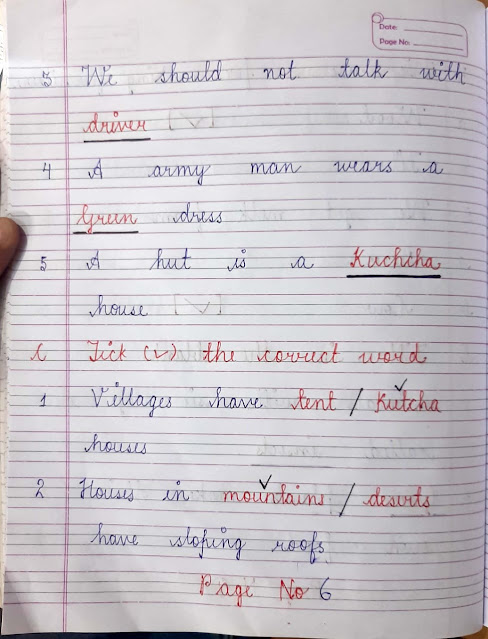 Date:
Page No:
3 We should not talk with
driver [✓]
4 A army man wears a
Green dress
5 A hut is a Kuchcha
house [✓]
C Tick (✓) the correct word
1 Villages have tent / Kutcha ✓
houses
2 Houses in mountains ✓ / deserts
have sloping roofs
Page No 6